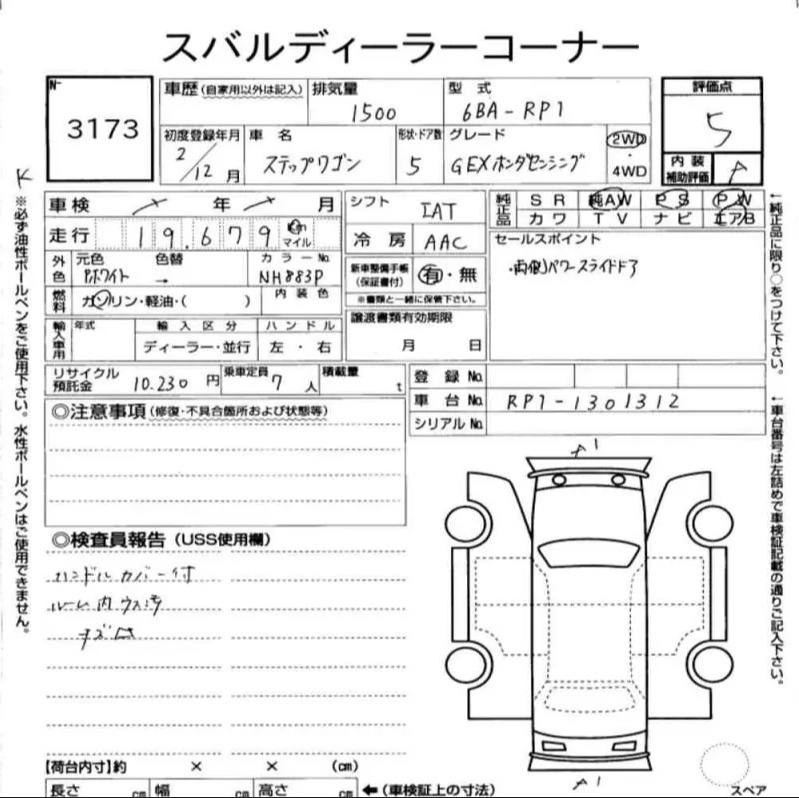 スバルディーラーコーナー
№
3173
車歴 (自家用以外は記入)
排気量
1500
型式
6BA-RP1
評価点
5
初度登録年月
2/12月
車名
ステップワゴン
形状・ドア数
5
グレード
GEXホンダセンシング
2WD
・
4WD
内装
補助評価
A
車検 年 月
走行 19.679 km
マイル
外色
元色
Pホワイト
色替
→
カラーNo.
NH883P
燃料
ガソリン・軽油・( )
内装色
輸入車用
年式
輸入区分
ディーラー・並行
ハンドル
左・右
シフト
IAT
冷房
AAC
新車整備手帳
(保証書付)
有・無
※書類と一緒に保管下さい。
譲渡書類有効期限
月 日
純正品
SR 純AW PS PW
カワ TV ナビ エアB
セールスポイント
・両側パワースライドドア
リサイクル
預託金
10.230 円
乗車定員
7 人
積載量
t
登録No.
車台No. RP1-1301312
シリアルNo.
◎注意事項 (修復・不具合箇所および状態等)
◎検査員報告 (USS使用欄)
ハンドルカバー付
ルーム内ウス汚
キズ凹
A1
A1
スペア
【荷台内寸】約 × × (cm)
長さ cm 幅 cm 高さ cm ←(車検証上の寸法)
K
※必ず油性ボールペンをご使用下さい。水性ボールペンはご使用できません。
←純正品に限り○をつけて下さい。
←車台番号は左詰めで車検証記載の通りご記入下さい。